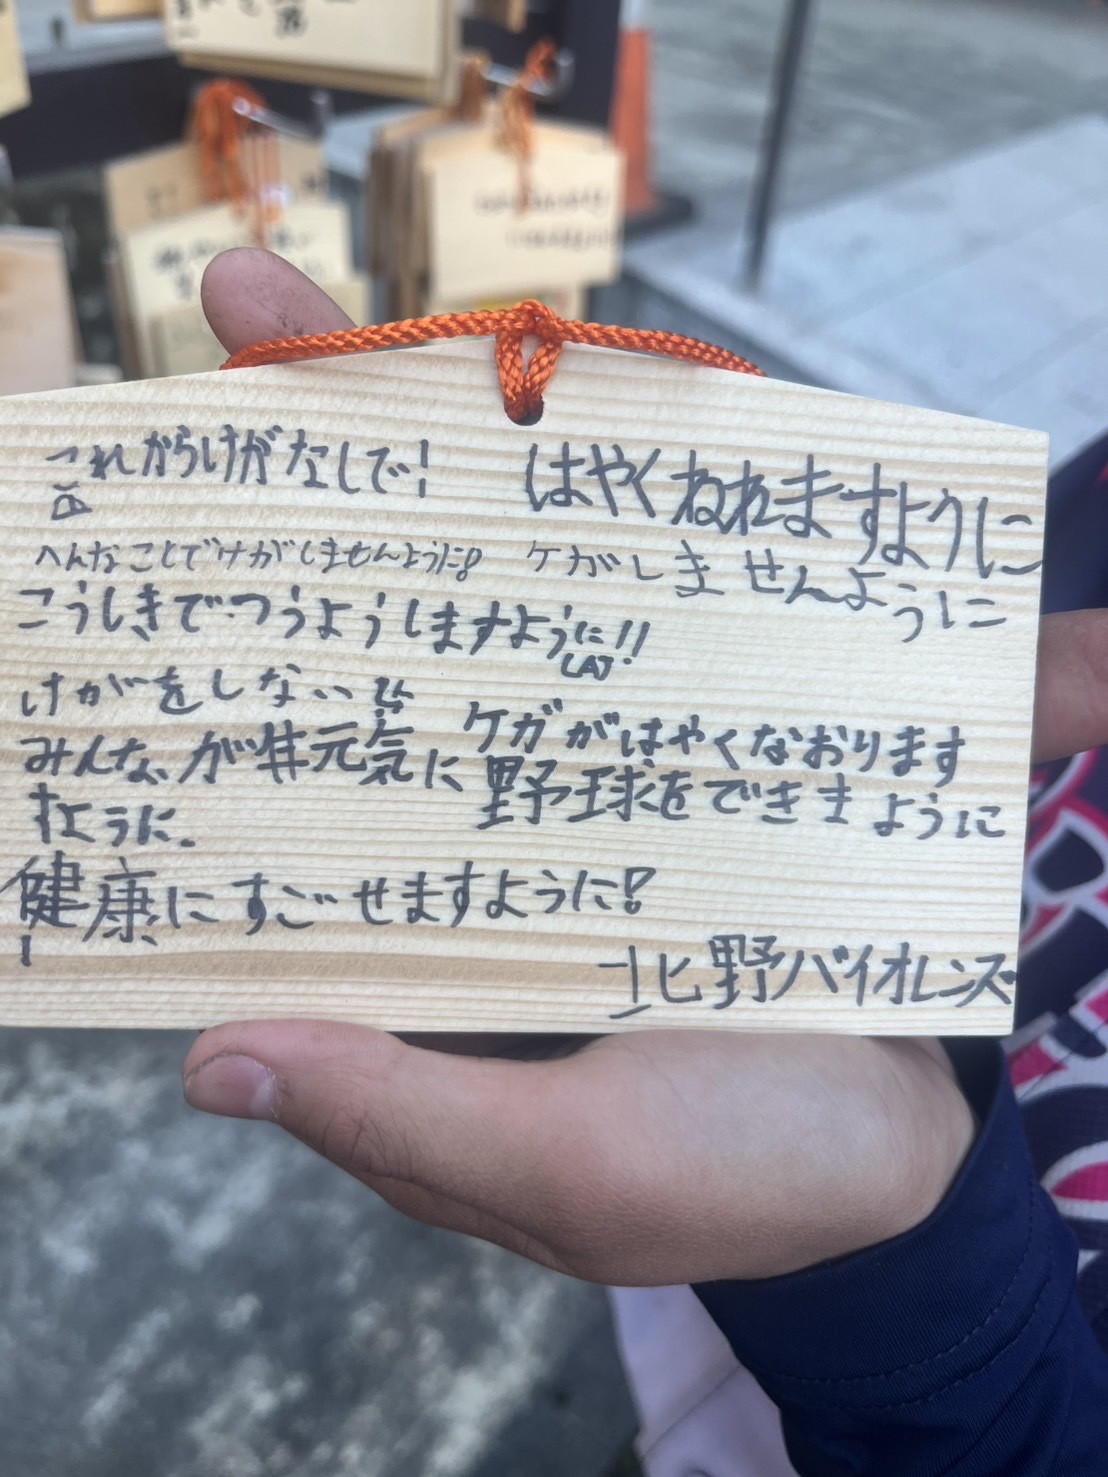 これからけがなしで!
はやくねれますように
へんなことでけがしませんように!
ケガがしませんように
こうしきでつうようしますように!!
けがをしない
ケガがはやくなおります
ように
みんなが元気に
野球をできま
すように.
健康にすごせますように!
北野バイオレンズ